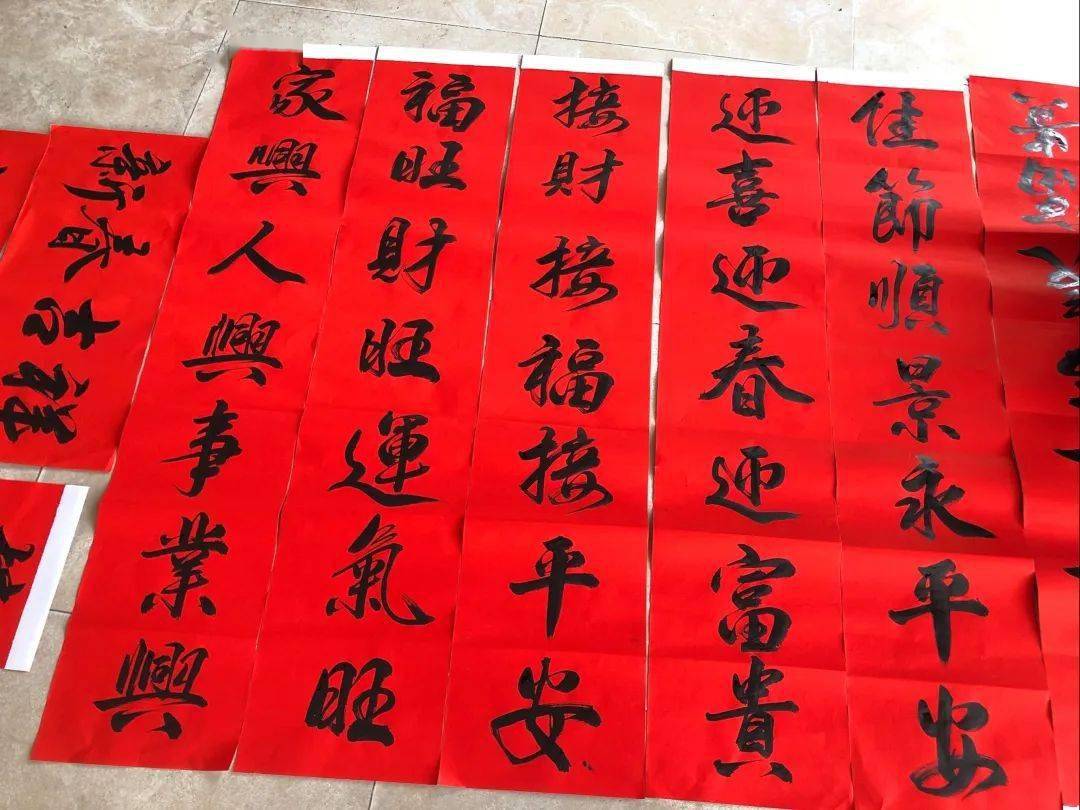 佳節順景永平安
迎喜迎春迎富貴
接財接福接平安
福旺財旺運氣旺
家興人興事業興
新春吉